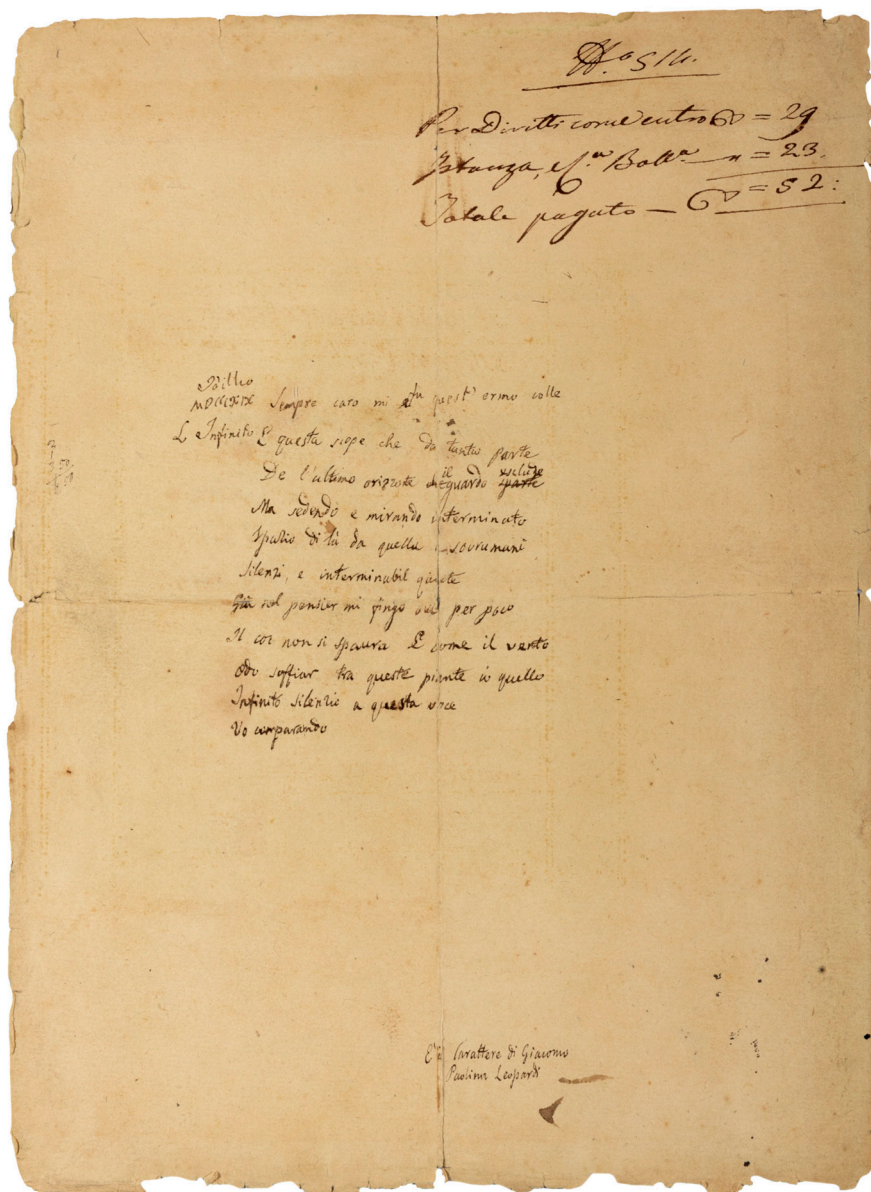 N.o 514.
Per Diritti come dentro = 29
Istanza, e = 23.
Totale pagato — = 52:
Idillio
MDCCCXIX Sempre caro mi fu quest' ermo colle
L Infinito E questa siepe che da tanta parte
De l'ultimo orizonte il guardo esclude
Ma sedendo e mirando interminato
Spazio di là da quella e sovrumani
Silenzi, e interminabil quiete
Già nel pensier mi fingo ove per poco
Il cor non si spaura E come il vento
Odo soffiar tra queste piante io quello
Infinito silenzio a questa voce
Vo comparando
Carattere di Giacomo
Paolina Leopardi